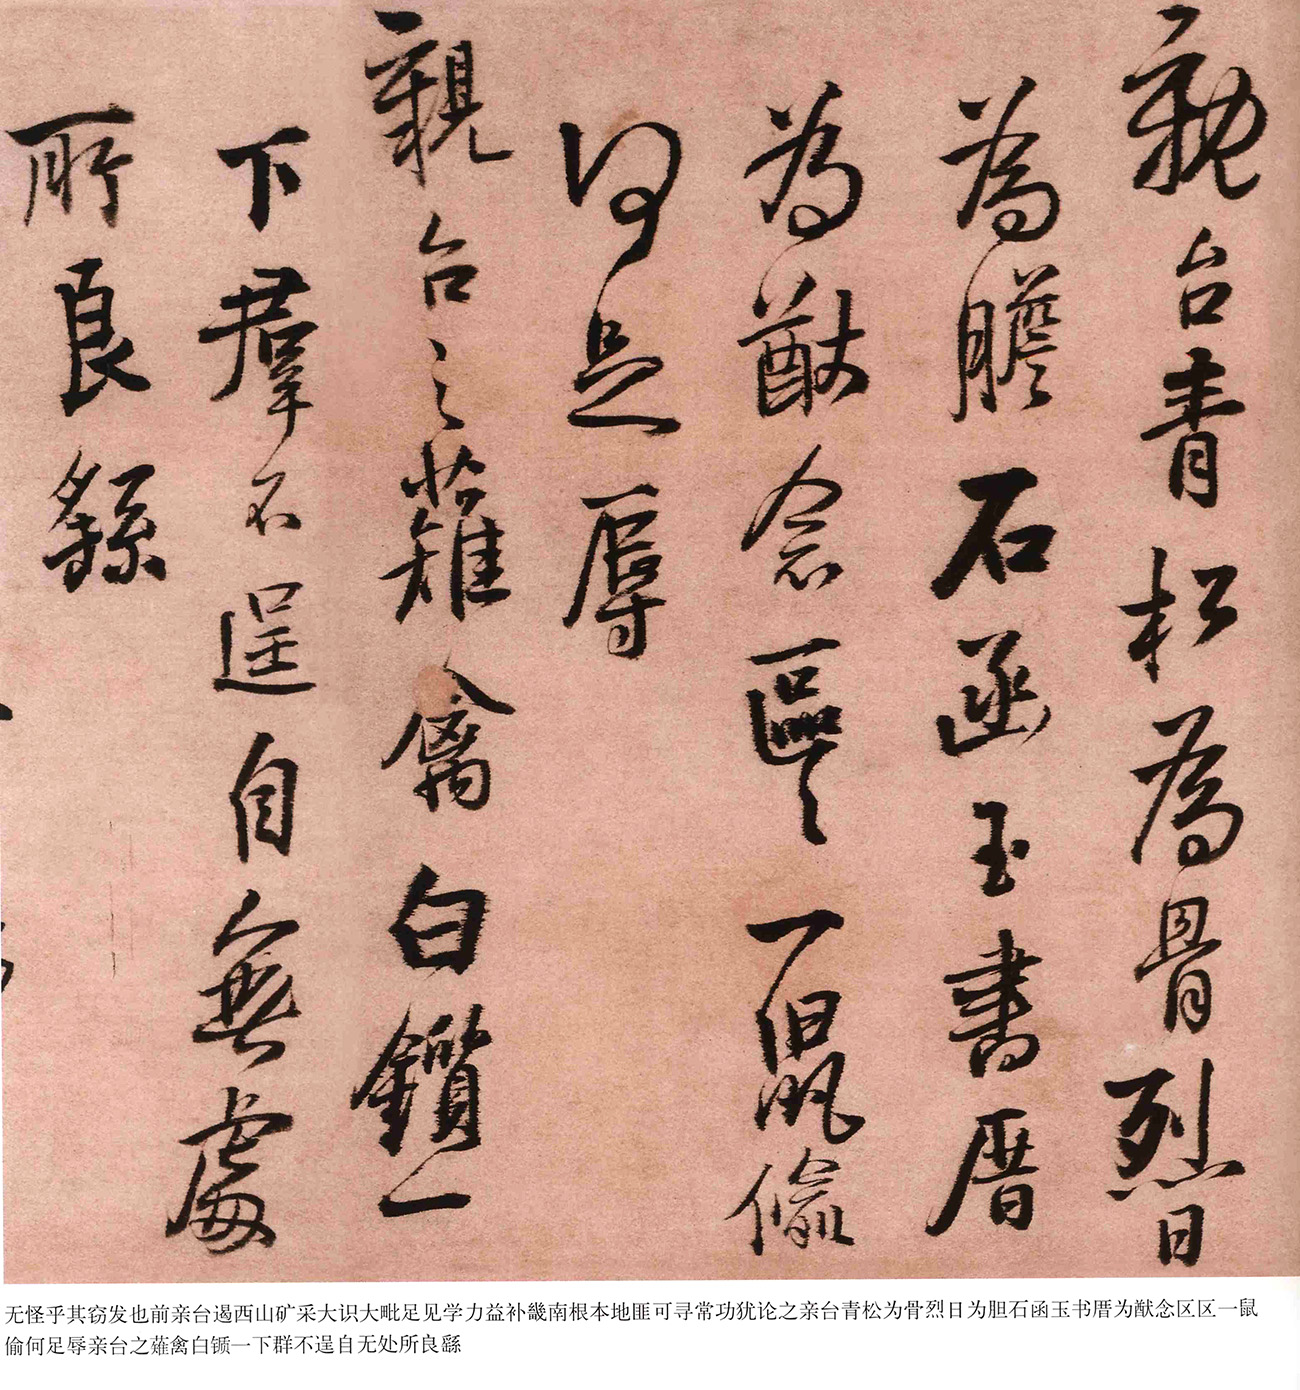 親台青松為骨烈日
為膽石函玉書厝
為猷念區〻一鼠偷
何足辱
親台之薙禽白鑕一
下羣不逞自無處
所良繇
无怪乎其窃发也前亲台遏西山矿采大识大毗足见学力益补畿南根本地匪可寻常功犹论之亲台青松为骨烈日为胆石函玉书厝为猷念区区一鼠
偷何足辱亲台之薙禽白锧一下群不逞自无处所良繇